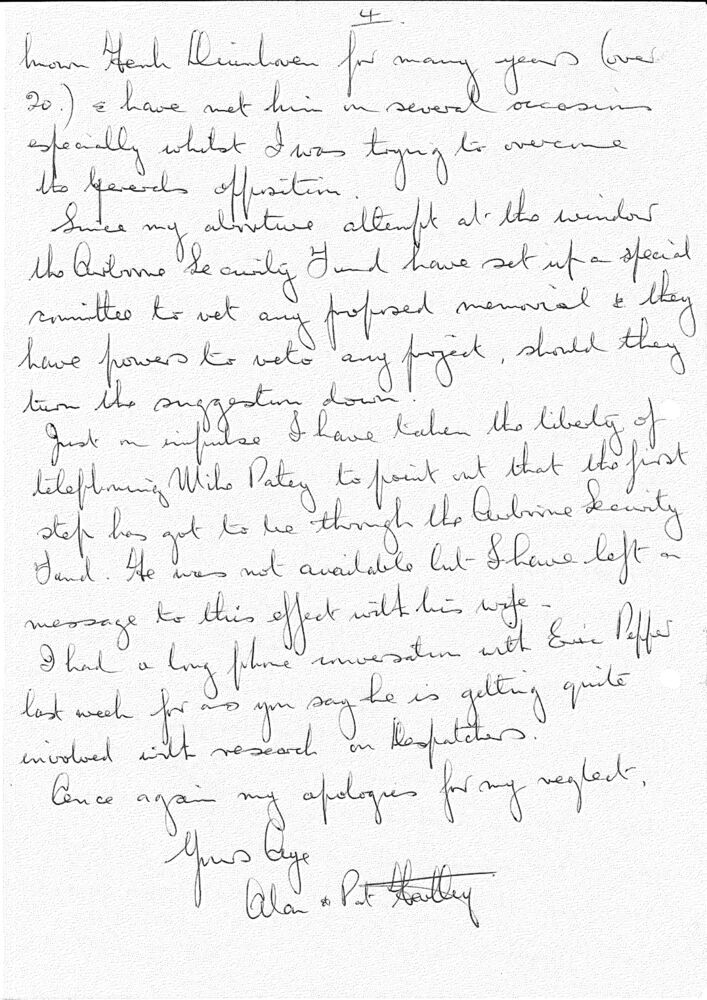 4.
known Henk Duinhoven for many years (over
20.) & have met him on several occasions
especially whilst I was trying to overcome
the Generals opposition.
Since my abortive attempt at the window
the Airborne Security Fund have set up a special
committee to vet any proposed memorial & they
have powers to veto any project, should they
turn the suggestion down.
Just on impulse I have taken the liberty of
telephoning Mike Patey to point out that the first
step has got to be through the Airborne Security
Fund. He was not available but I have left a
message to this effect with his wife -
I had a long phone conversation with Eric Pepper
last week for as you say he is getting quite
involved with research on Despatchers.
Once again my apologies for my neglect,
Yours Aye
Alan & Pat Hartley